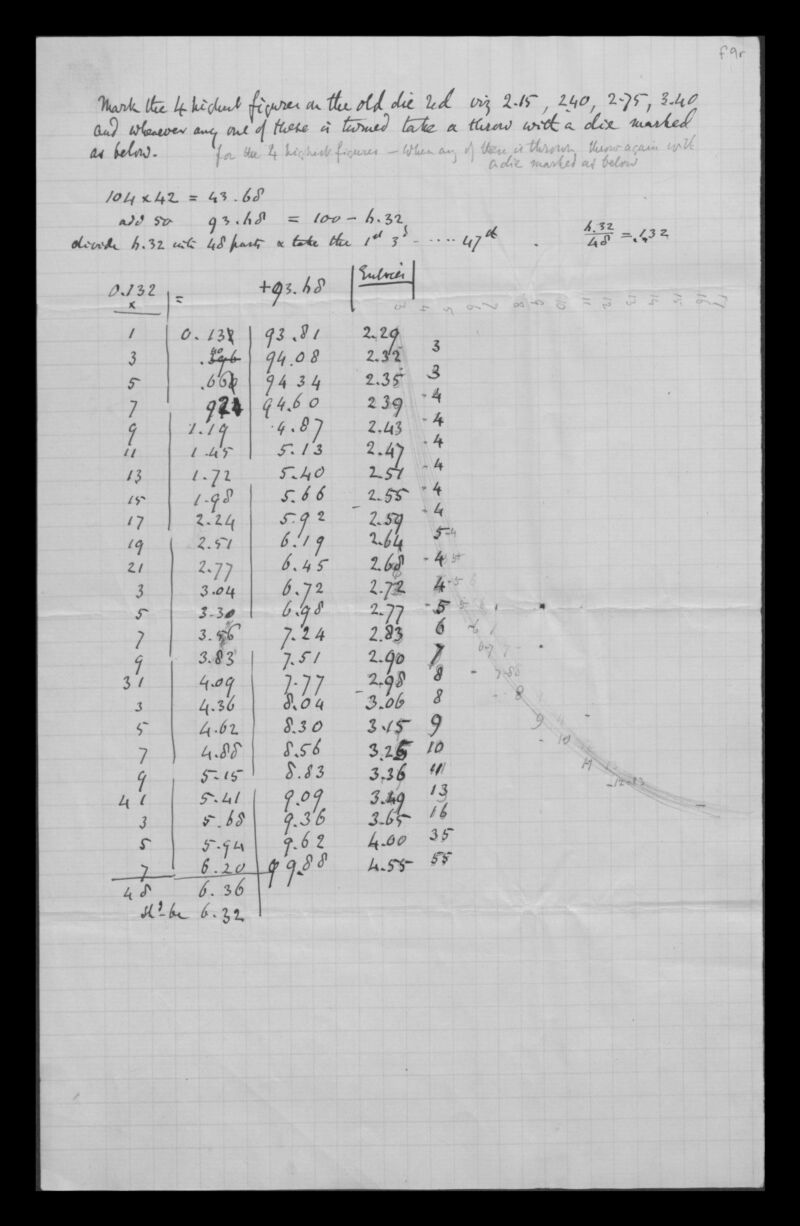 f9r
Mark the 4 highest figures on the old die red viz 2.15, 2.40, 2.75, 3.40
and whenever any one of these is turned take a throw with a die marked
as below.
for the 4 highest figures – When any of these is thrown, throw again with
a die marked as below
104 x 42 = 43.68
add 50 93.68 = 100 – 6.32
divide 6.32 into 48 parts & take the 1st 3d ..... 47th . 6.32/48 = .132
0.132 x = +93.68 Entries
1 0.132 93.81 2.29
3 .396 94.08 2.32 3
5 .66 94 34 2.35 3
7 92 94.60 239 - 4
9 1.19 4.87 2.43 - 4
11 1.45 5.13 2.47 - 4
13 1.72 5.40 2.51 - 4
15 1.98 5.66 2.55 - 4
17 2.24 5.92 2.59 - 4
19 2.51 6.19 2.64 5
21 2.77 6.45 268 - 4
3 3.04 6.72 2.72 4
5 3.30 6.98 2.77 - 5
7 3.56 7.24 2.83 6
9 3.83 7.51 2.90 7
31 4.09 7.77 2.98 8
3 4.36 8.04 3.06 8
5 4.62 8.30 3.15 9
7 4.88 8.56 3.25 10
9 5.15 8.83 3.36 11
41 5.41 9.09 3.49 13
3 5.68 9.36 3.65 16
5 5.94 9.62 4.00 35
7 6.20 99.88 4.55 55
48 6.36
shd be 6.32